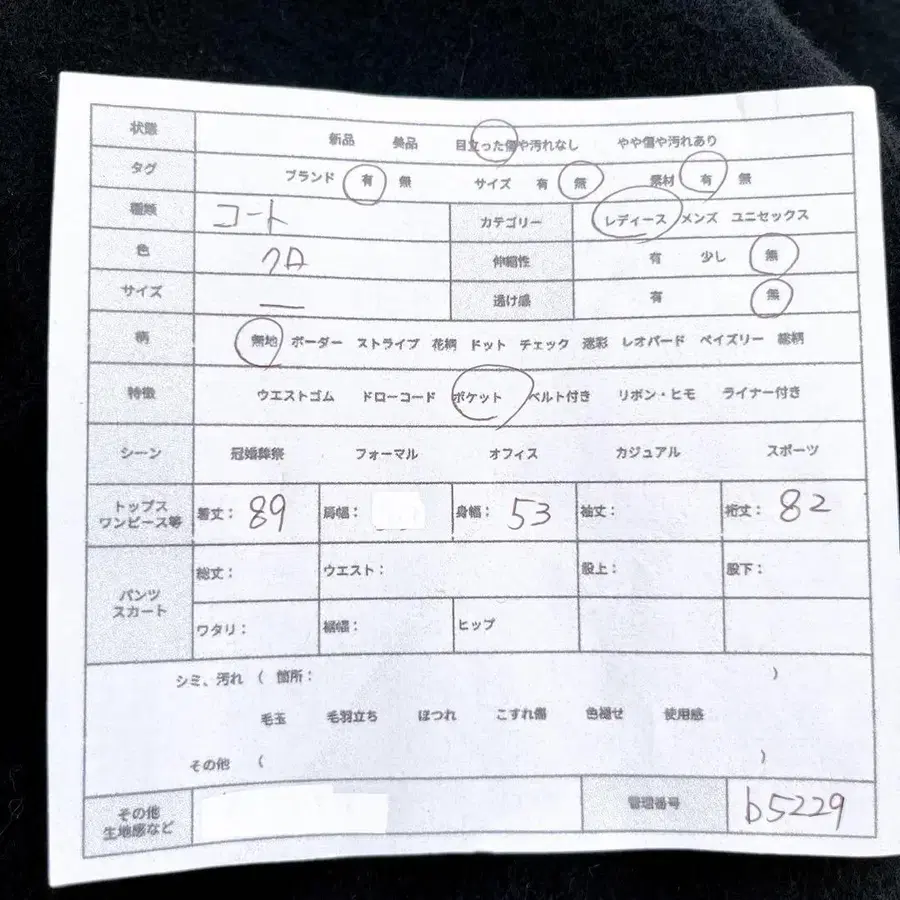 状態 新品 美品 目立った傷や汚れなし やや傷や汚れあり
タグ ブランド 有 無 サイズ 有 無 素材 有 無
種類 コート カテゴリー レディース メンズ ユニセックス
色 クロ 伸縮性 有 少し 無
サイズ ー 透け感 有 無
柄 無地 ボーダー ストライプ 花柄 ドット チェック 迷彩 レオパード ペイズリー 総柄
特徴 ウエストゴム ドローコード ポケット ベルト付き リボン・ヒモ ライナー付き
シーン 冠婚葬祭 フォーマル オフィス カジュアル スポーツ
トップス
ワンピース等
着丈: 89 肩幅: 身幅: 53 袖丈: 裄丈: 82
パンツ
スカート
総丈: ウエスト: 股上: 股下:
ワタリ: 裾幅: ヒップ
シミ、汚れ ( 箇所: )
毛玉 毛羽立ち ほつれ こすれ傷 色褪せ 使用感
その他 ( )
その他
生地感など
管理番号 b5229